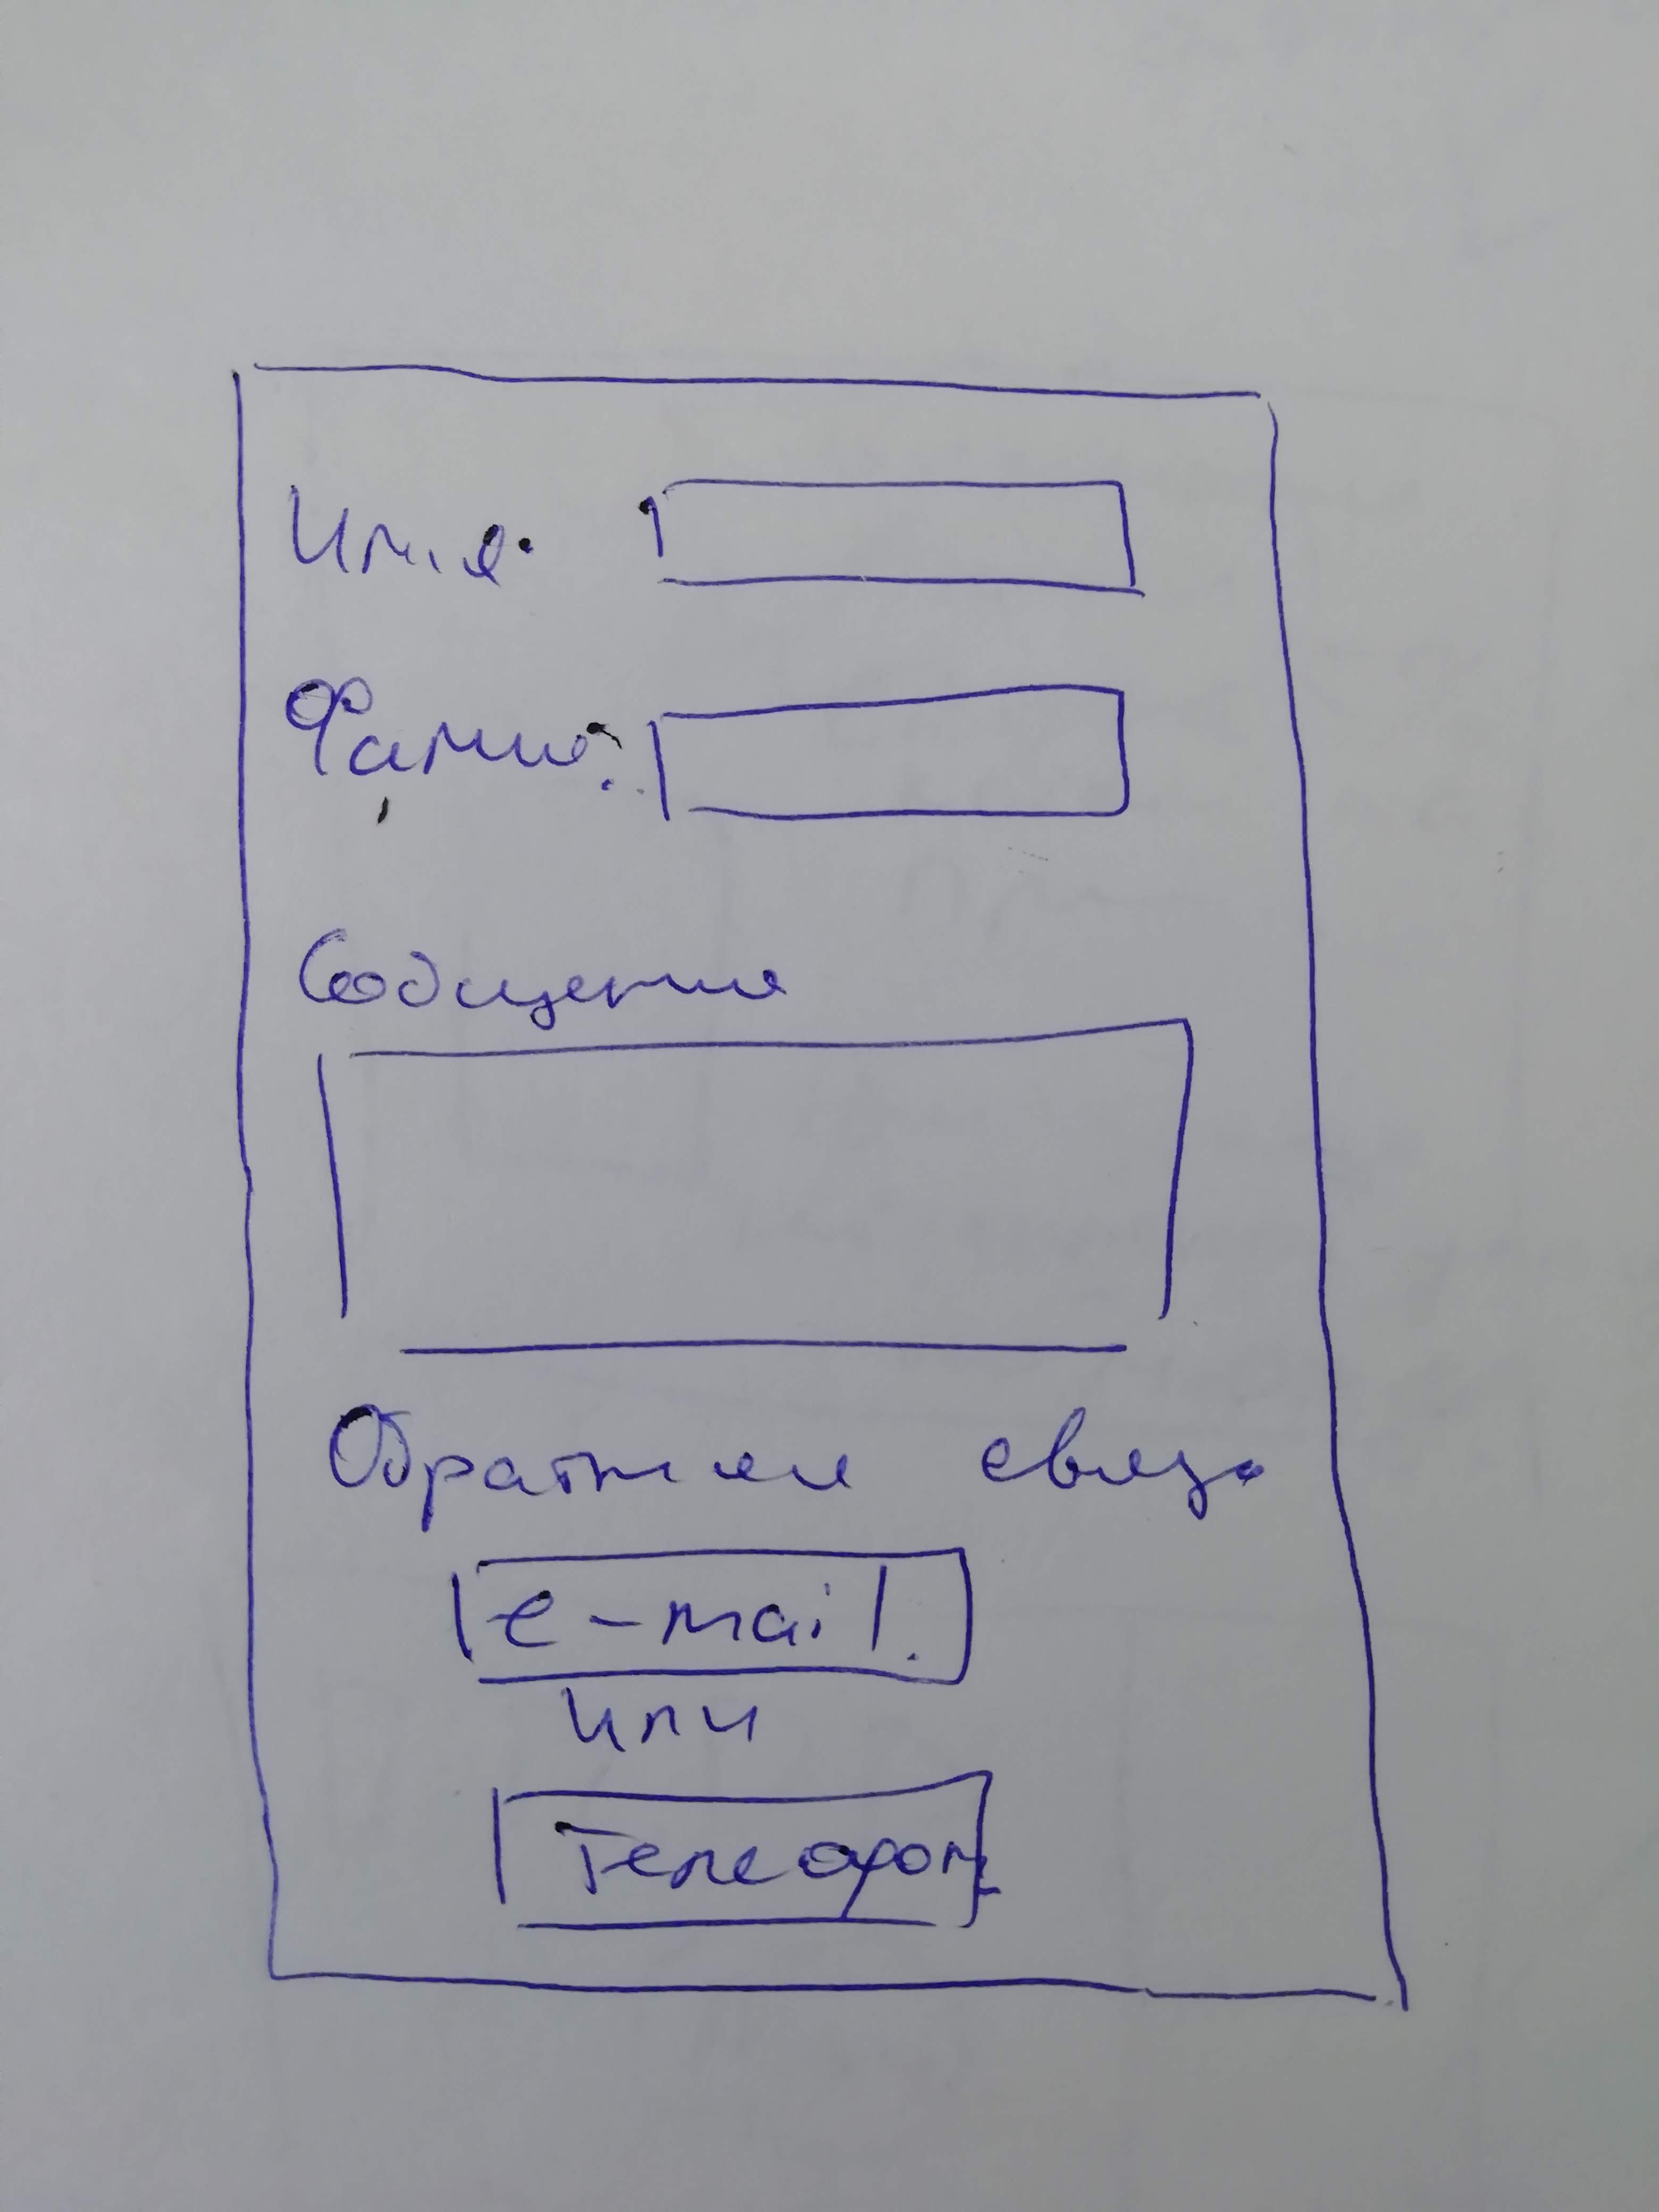 Имя:
Фамил:
Сообщения
Обратная связь
e-mail.
или
Телефон